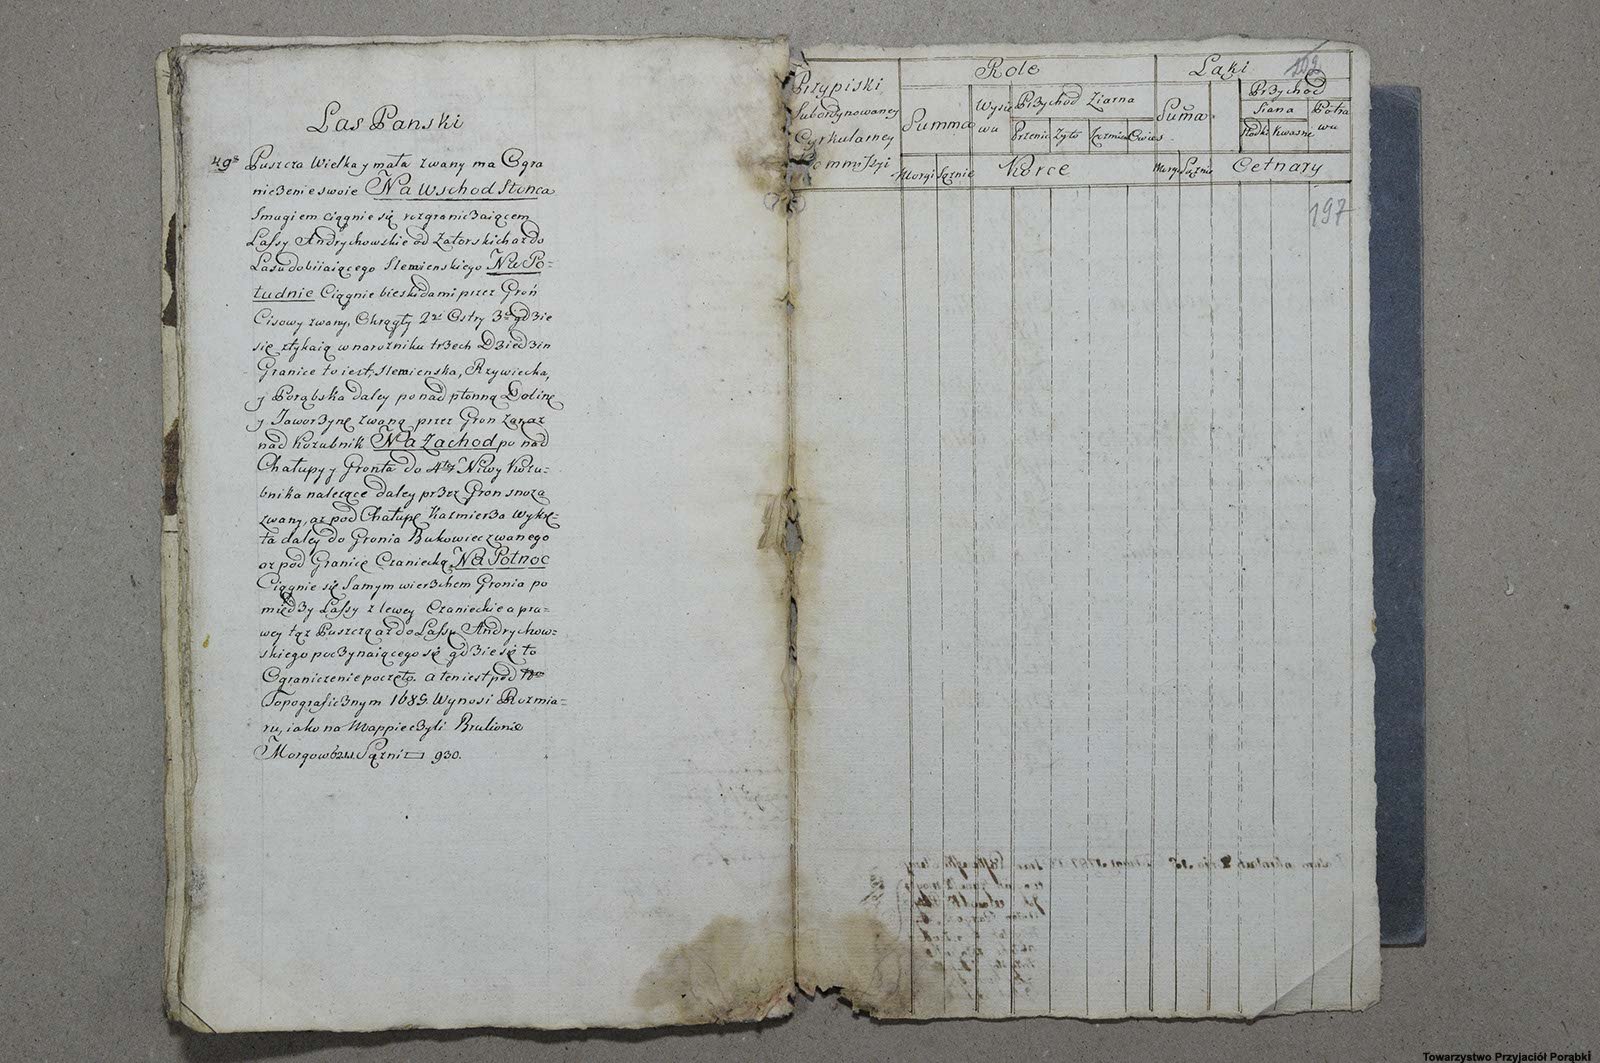 Las Panski
Puszcza Wielka y mała zwany ma Ogra
niczenie swoie Na Wschod Słonca
Smugiem ciągnie się rozgraniczaiącem
Lassy Andrychowskie od Zatorskich aż do
Lasu dobiiaiącego Slemienskiego Na Po=
łudnie Ciągnie bieskidami przez Groń
Cisowy zwany, Okrągły 2gi Ostry 3ci gdzie
się ztykaią w narożniku trzech Dziedzin
Granice to iest, Slemienska, Rzywiecka,
y Porąbska daley ponad płonną Dolinę
y Jaworzynę zwaną przez Gron
nad Kozubnik Na Zachod po nad
Chałupy y Gronta do 4tey Niwy Kozu=
bnika należące daley przez Gron
zwany, aż pod Chałupę Kazmierza Wykrę=
ta daley do Gronia Bukowiec zwanego
aż pod Granicę Czaniecką Na Połnoc
Ciągnie się samym wierzchem Gronia po
między Lassy z lewey Czanieckie a pra=
wey tąż Puszczą aż do Lassu Andrychow=
skiego poczynaiącego się gdzie się to
Ograniczenie poczęło. a ten iest pod Nro
Topograficznym 1689. Wynosi Rozmia=
ru, iako na Mappie czyli Brulionie
Morgow Sążni □ 930.
Przypiski
Subordynowaney
Cyrkularney
Kommissyi
Role
Łąki
102
Summa
Wysie
wu
Przychod Ziarna
Pszenic Żyto Jęczmień Owies
Suma
Przychod
Siana
Słodki Kwasne
Potra
wu
Morgi Sążnie
Korce
Morgi Sążnie
Cetnary
197
Towarzystwo Przyjaciół Porąbki